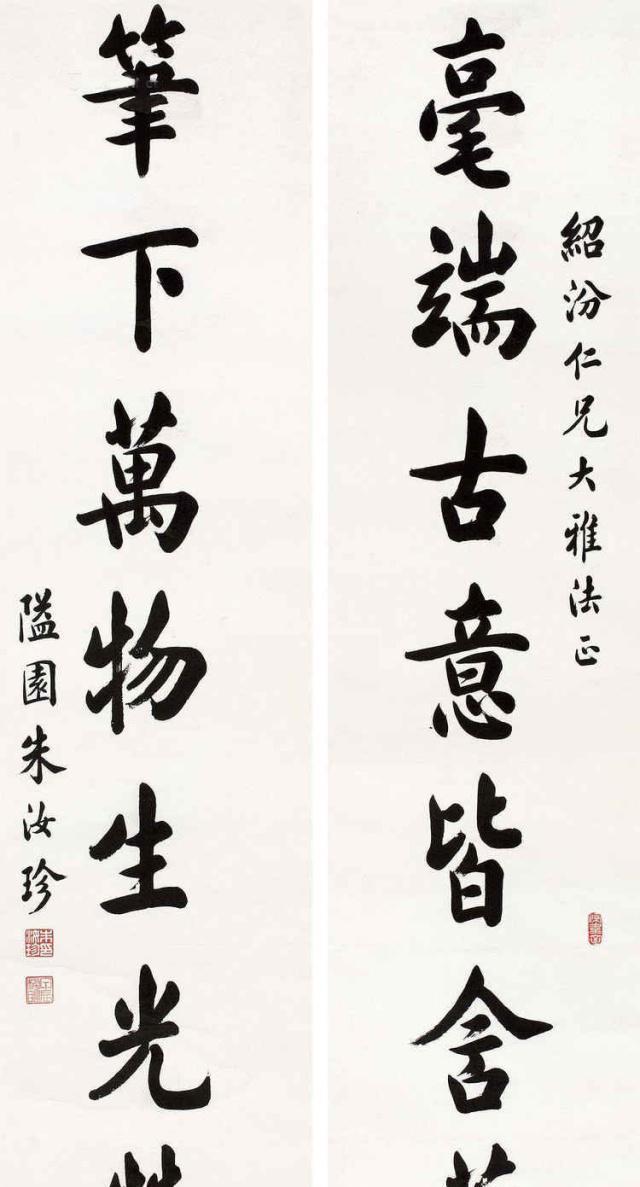 紹汾仁兄大雅法正
毫端古意皆含
筆下萬物生光
隘園朱汝珍